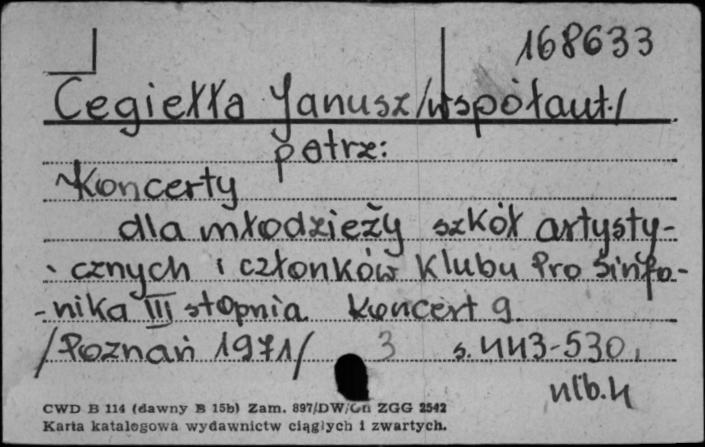 168633
Cegiełła Janusz /współaut./
patrz:
Koncerty
dla młodzieży szkół artysty-
cznych i członków Klubu Pro Sinfo-
-nika III stopnia. Koncert 9.
/Poznań 1971/ 3 s. 443-530,
nlb. 4
CWD B 114 (dawny B 15b) Zam. 897/DW/Gn ZGG 2542
Karta katalogowa wydawnictw ciągłych i zwartych.